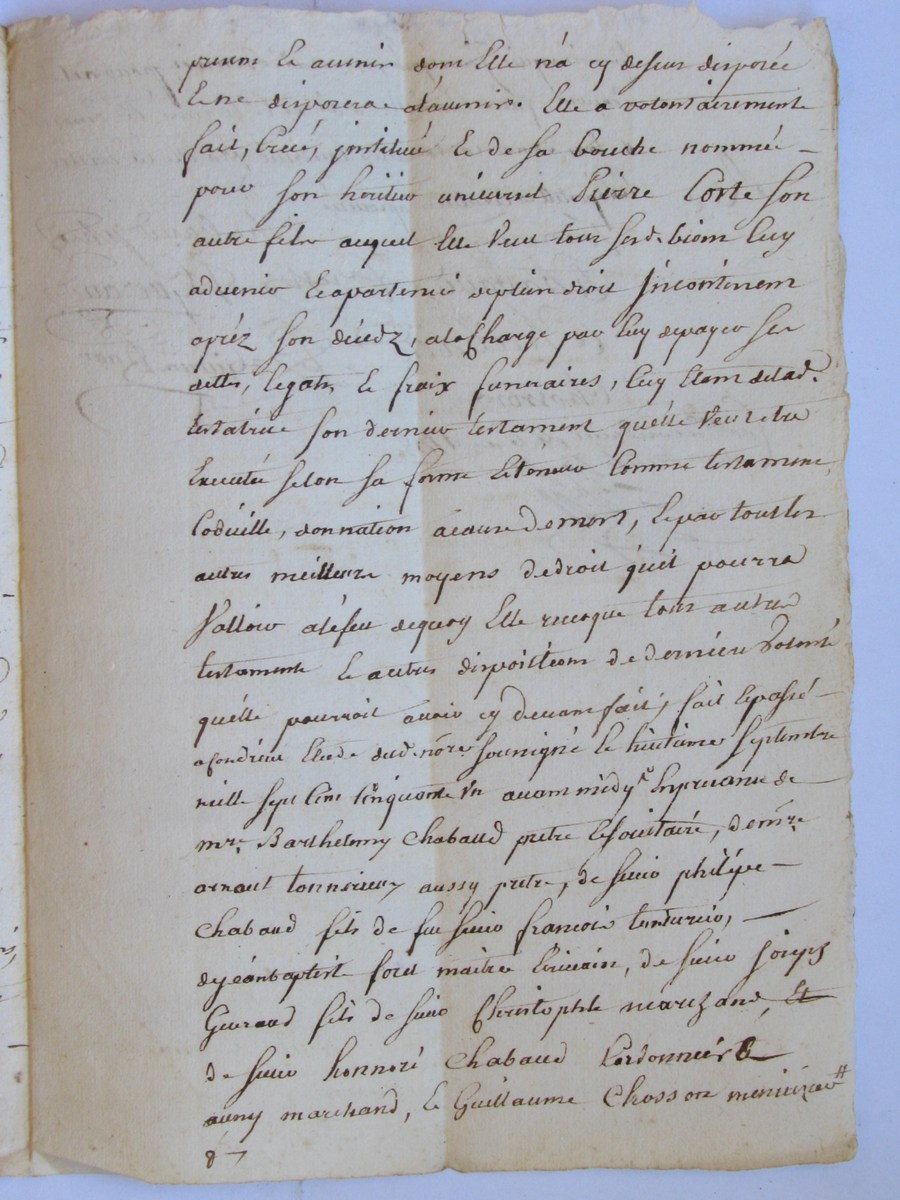 present et avenir dont Elle n'à cy dessus disposée
Et ne disposera à l'avenir. Elle a volontairement
fait, Creé, jnstitué Et de sa bouche nommé –
pour son héritier universel Pierre Corte son
autre fils auquel Elle Veut tous sesd. biens luy
advenir Et apartenir deplein droit Jncontinent
apréz son décédz, ala Charge par luy depayer ses
dettes, legats, Et fraix funeraires, luy Etant deladte.
testatrice son dernier testament quélle Veut etre
Executée selon sa forme Et téneur Comme testament,
Codicille, donnation acause demort, Et par tous les
autres meilleurs moyens dedroit quil pourra
Valloir aléfet dequoy Elle revoque tous autres
testaments Et autres dispositions de derniere Volonté
quélle pourroit avoir cy devant fait, fait Et passé –
Etude dud. nore. soussigné le huitieme septembre
mille sept Cens Cinquante Un avant midy En presance de
mre. Barthelemy Chabaud pretre, de mre.
arnaut aussy pretre, de sieur philipe –
Chabaud fils de feu sieur francois –
de jéan baptiste maitre Ecrivain, de sieur Joseph
Guiraud fils de sieur Christophle marchand, Et
de sieur honnoré Chabaud Cordonnier
aussy marchand, Et Guillaume Chosson menuizier #